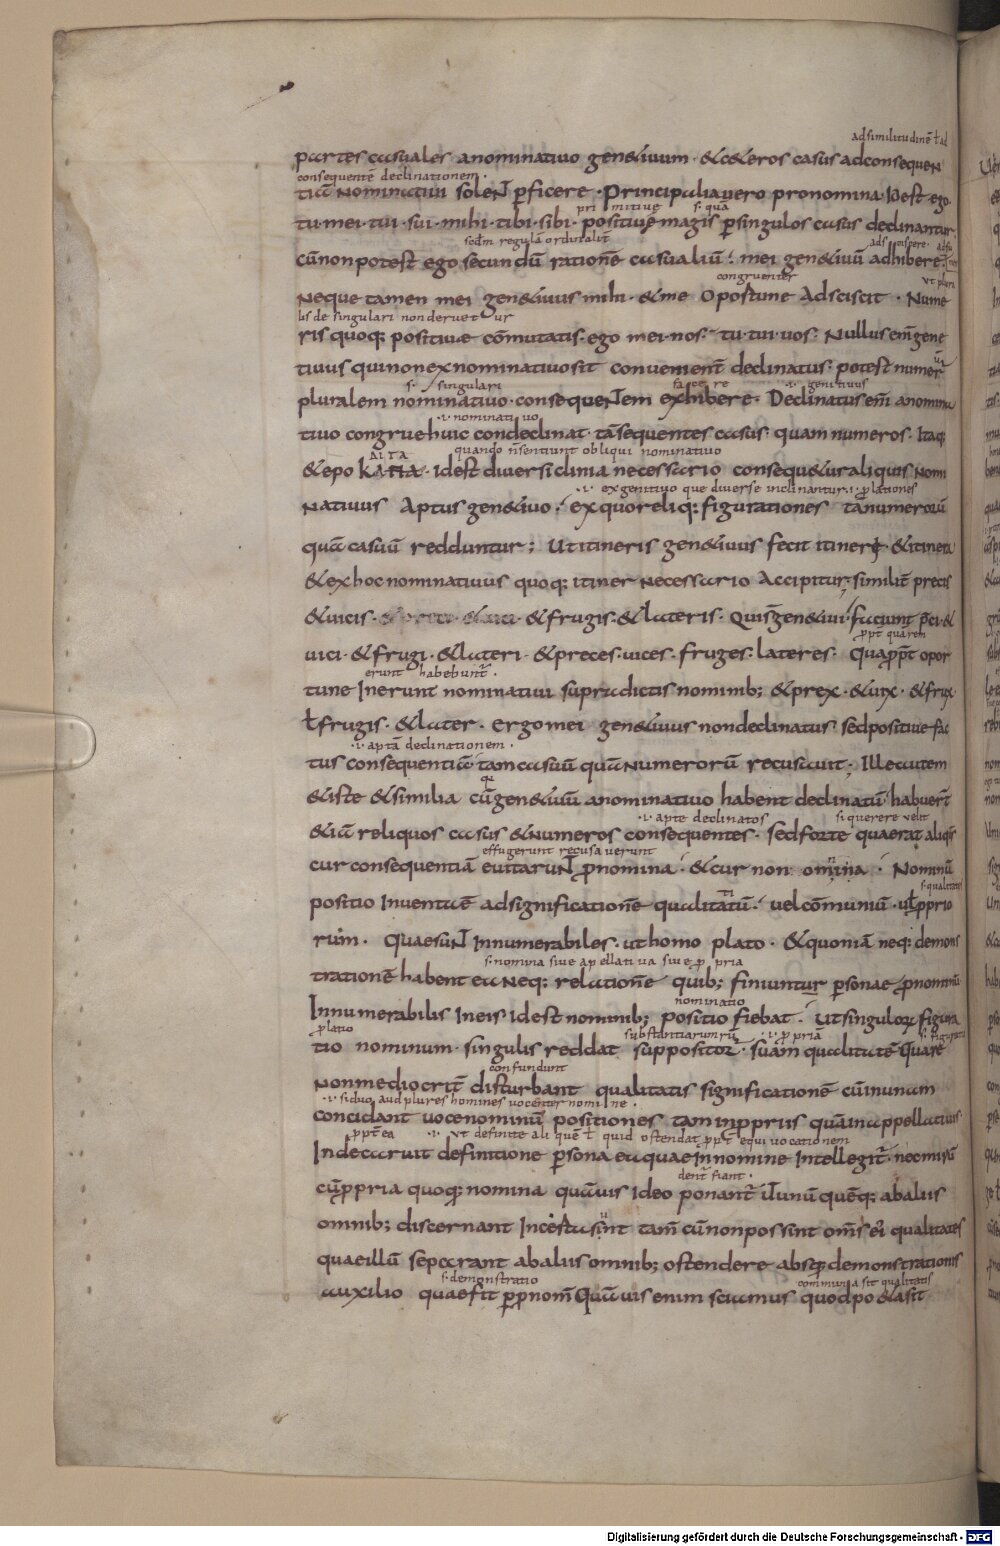 adsimilitudinē ł ad
partes casuales anominatiuo gen&iuum · &c&eros casus adconsequeN
consequentē declinationem ·
tiā Nominatiui soleNT p̄ficere · Principalia uero pronomina · Id est ego ·
pri mitiue s · quā
tu · mei · tui · sui · mihi · tibi · sibi · positiue magis p̄singulos casus declinantur
scdm̄ regulā
cū non potest ego secundū rationē casualiū · mei gen&iuū adhibere
congruenter
Neque tamen mei gen&iuus mihi · &me Oportune Adsciscit · Nume
lis de singulari non deriuet ur
ris quoq; positiuae cōmutatis · ego mei · nos · tu · tui · uos · Nullus em̄ gene
tiuus qui non ex nominatiuo sit conuenient̄ declinatus · potest numer
s · singulari face re ·i· genitiuus
pluralem nominatiuo · consequeNTem exhibere · Declinatus em̄ anomina
·i· nominati uo
tiuo congrue huic condeclinat · tā sequentes casus · quam numeros · Itaq;
quando n̄sentiunt obliqui nominativo
idest diuersiclinia necessario consequ&ur aliquis Nomi
·i· ex genitiuo que diuerse inclinantur ·i· p̄lationes
Natiuus Aptus gen&iuo · ex quo reliq; figurationes tā numerorū
quā casuū redduntur ; Ut itineris gen&iuus fecit itineri &itinera
& ex hoc nominatiuus quoq; itiner Necessario Accipitur · similit̄ precis
&uicis · &frugis · &lateris · Quis gen&iui faciunt p̄ci · &
ppt̄ quarem
uici · &frugi · &lateri · &preces · uices · fruges · lateres · Quapp̄t opor
erunt habebunt̄ ·
tune Inerunt nominatiui supradictis nominib; &prex · &uix · &frux
ł frugis · &later · Ergo mei gen&iuus non declinatus · sed positiue fac
·i· aptā declinationem ·
tus consequentiā · tam casuū quā Numerorū recusauit · Ille autem
&iste &similia cū gen&iuū anominatiuo habent declinatū · habuer̄t
·i· apte declinatos s · querere velit
&iā reliquos casus &numeros consequentes · sed forte quaerat aliqis
effugerunt recusa uerunt
cur consequentiā euitaruNT p̄nomina · &cur non omina · Nominū
s · qualitatis
positio Inuenta ē adsignificationē qualitatū · uel cōmuniū · uł pprio
rum · Quae suNT Innumerabiles · ut homo plato · &quoniā neq; demons
s · nomina siue apellatiua siue p̄ pria
trationē habent ea Neq; relationē quib; finiuntur p̄sonae p̄nominū
nominatio
Innumerabilis In eis Idest nominib; positio fiebat · Ut singuloꝝ figura
p̄latio substantiarum ·i· p̄priā
tio nominum · singulis reddat suppositoꝝ · suam qualitatē Quare
confundunt
Non mediocrit̄ disturbant qualitatis significationē cū in unam
·i· si duo aud plures homines uocentur nomine ·
Concidant uoce nominū positiones tam inppriis quā in appellatiuis
ppt̄ea ·i· vt definite ali quē ł quid ostendat ppt̄ equi uocationem
Inde caruit definitione p̄sona ea quae In nomine Intellegit̄ · nec mirū
dent̄ fiant ·
cū ppria quoq; nomina quāuis Ideo ponant̄ ut unū quēq; ab aliis
omnib; discernant Incesta sunt tam̄ cū non possint om̄s ei qualitates
quae illū separant ab aliis omnib; ostendere absq; demonstrationis
s · demonstratio communia sit qualitatis
auxilio quae fit p pnom̄ Quāuis enim sciamus quod po&a sit
Digitalisierung gefördert durch die Deutsche Forschungsgemeinschaft - DFG